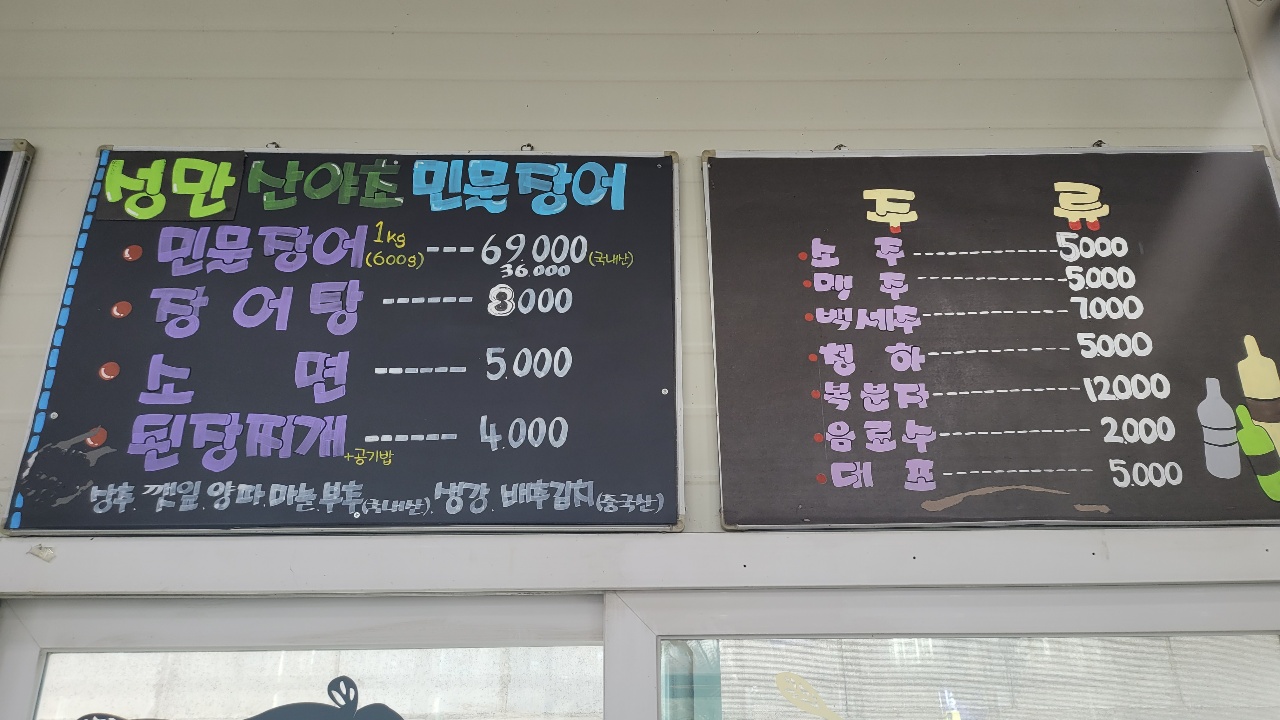 성만 산야초 민물장어
민물장어 1kg (600g) --- 69.000 (국내산)
36.000
장어탕 ------ 8000
소 면 ------ 5.000
된장찌개 +공기밥 ------ 4.000
상추. 깻잎. 양파. 마늘. 부추(국내산). 생강. 배추김치(중국산)
주 류
소 주 ---------------- 5000
맥 주 ---------------- 5.000
백세주 ---------------- 7.000
청 하 ---------------- 5000
복분자 ---------------- 12.000
음료수 ---------------- 2.000
대 포 ---------------- 5.000